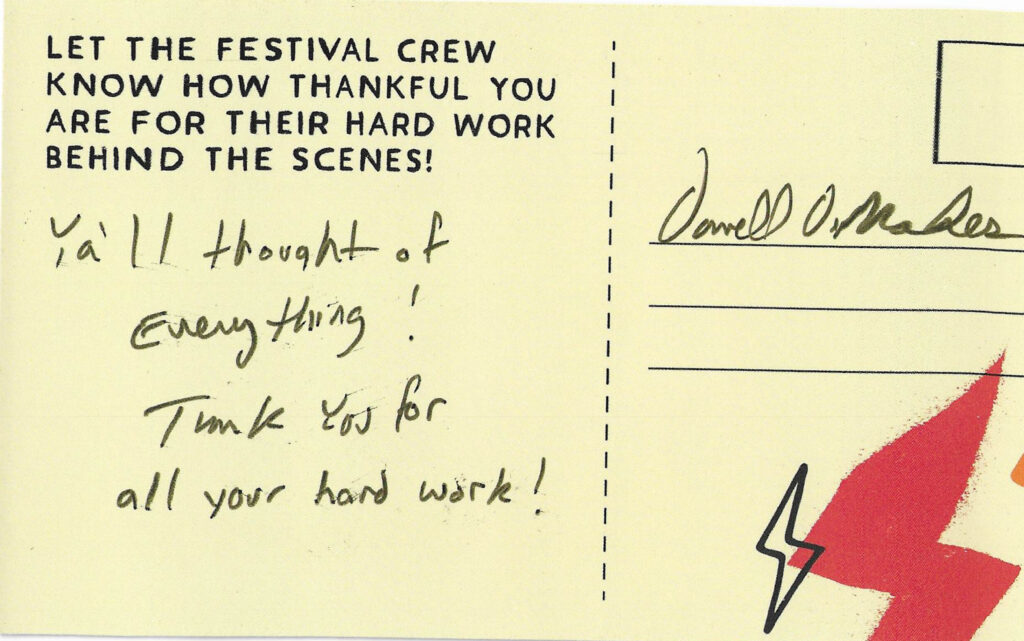 LET THE FESTIVAL CREW
KNOW HOW THANKFUL YOU
ARE FOR THEIR HARD WORK
BEHIND THE SCENES!
Ya'll thought of
Everything!
Thnk You for
all your hard work!